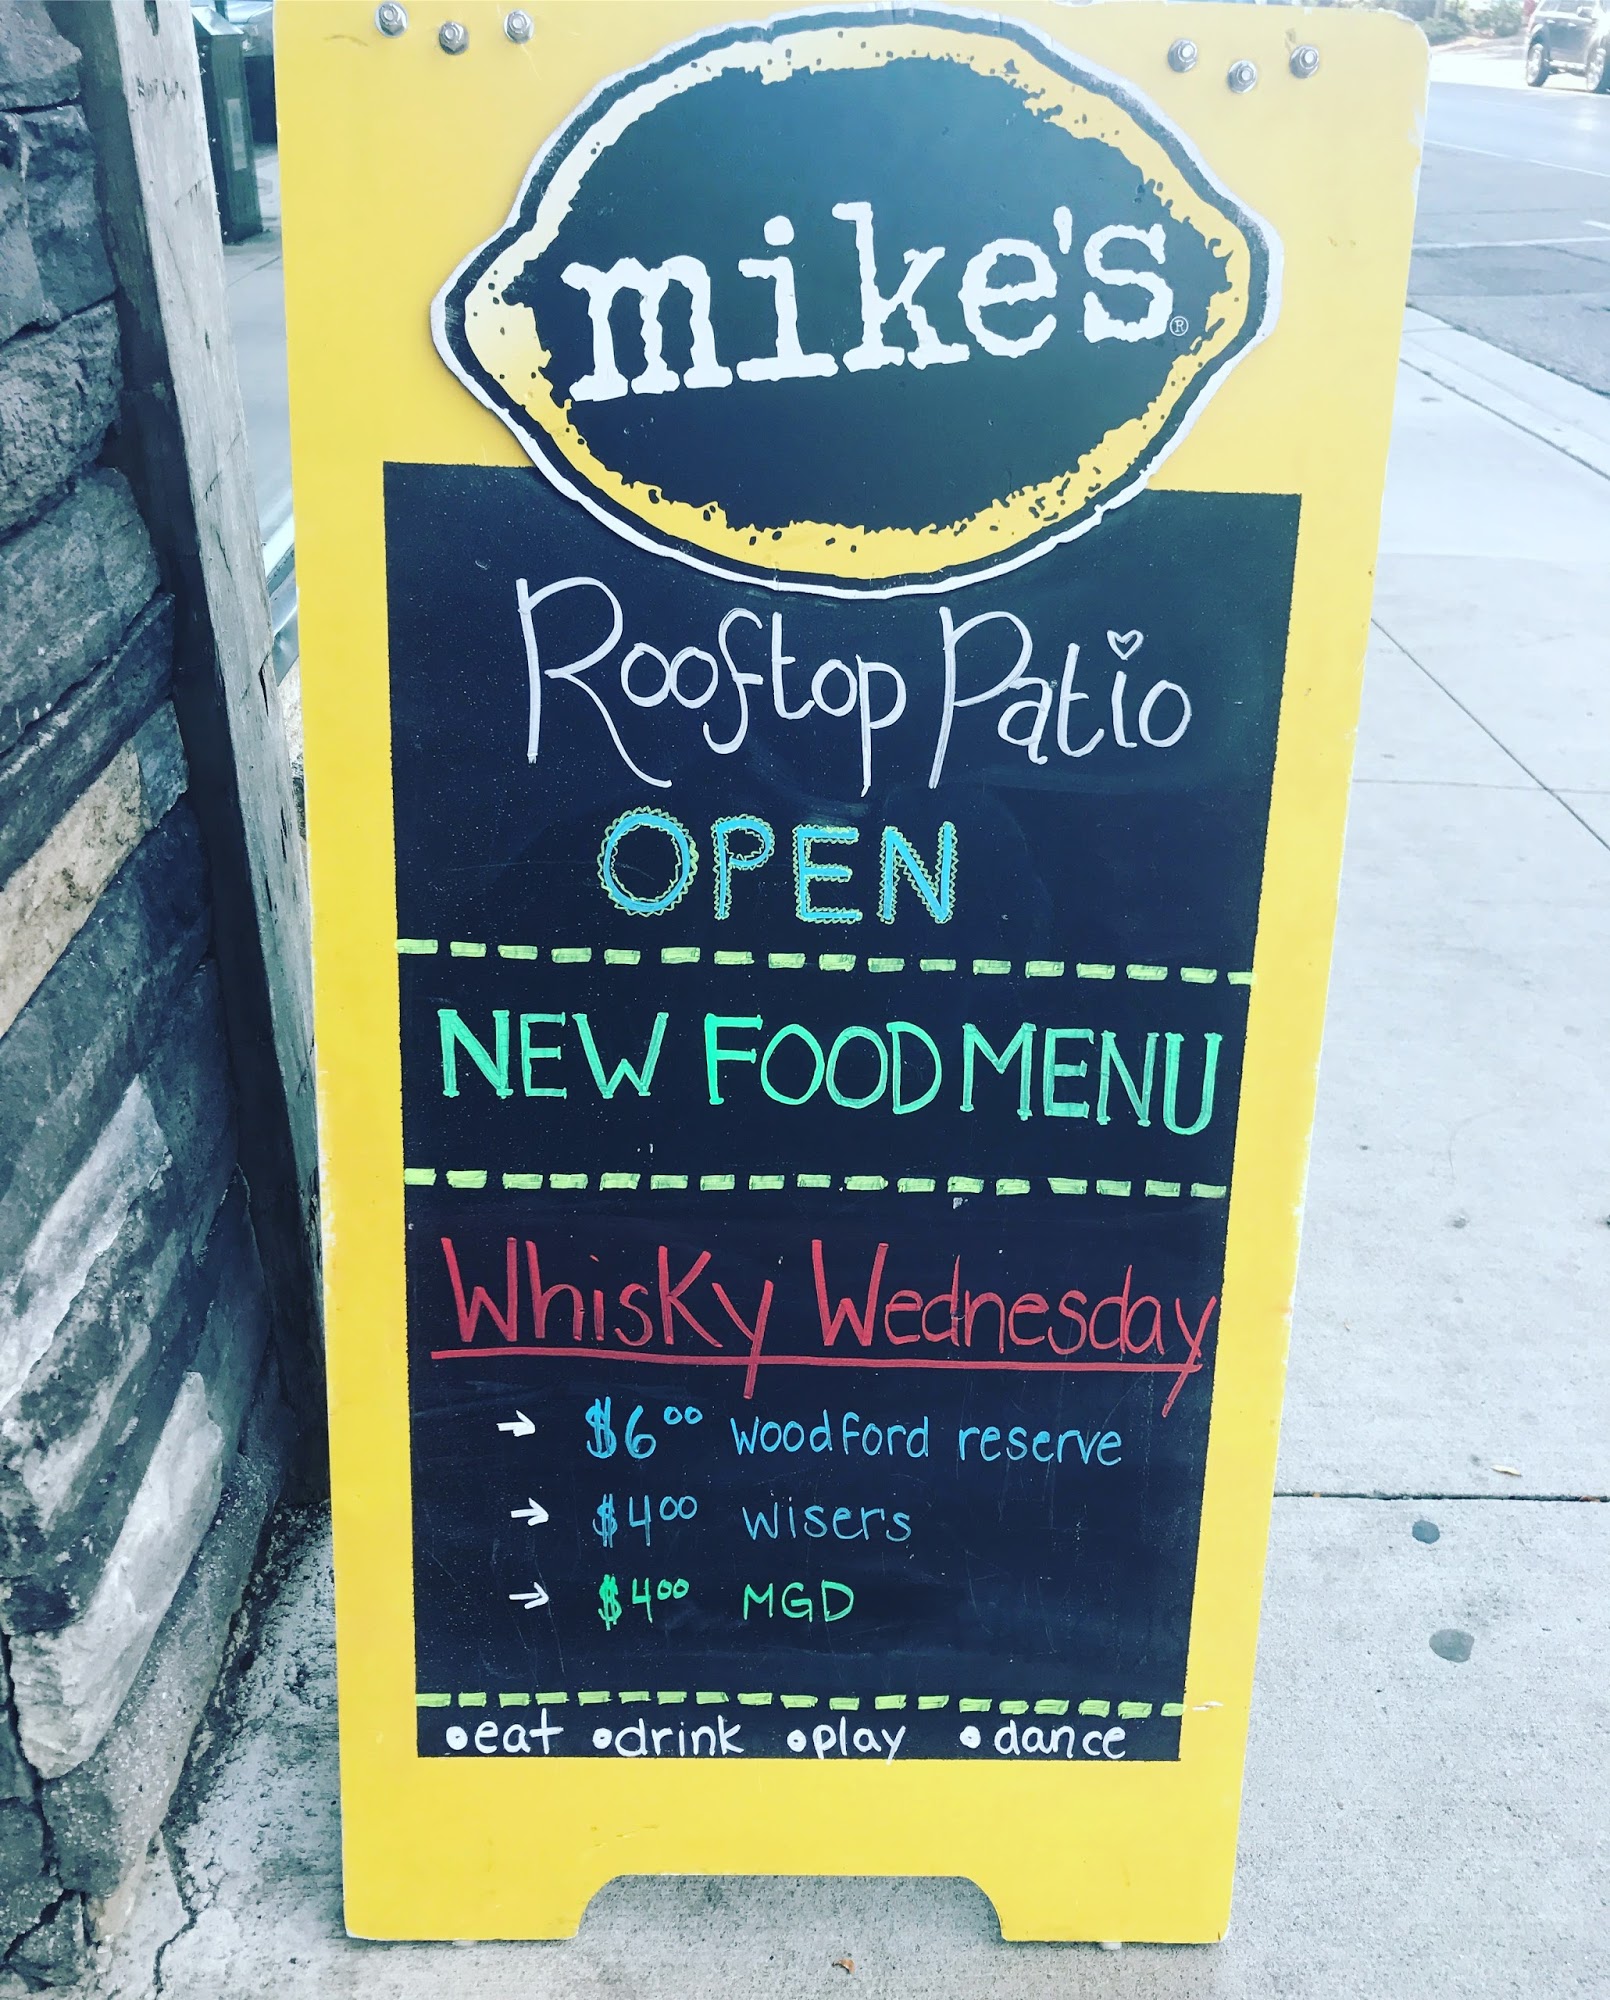 mike's®
Rooftop Patio
OPEN
NEW FOOD MENU
Whisky Wednesday
→ $6⁰⁰ woodford reserve
→ $4⁰⁰ wisers
→ $4⁰⁰ MGD
•eat •drink •play •dance